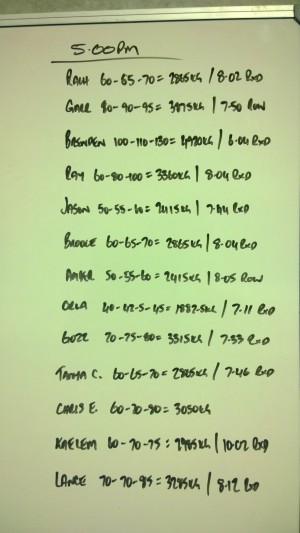 5.00PM
RAUL 60-65-70= 2865KG / 8.02 RXD
80-90-95= 3975KG / 7.50 ROW
100-110-130= 4920KG / 6.04 RXD
RAY 60-80-100= 3360KG / 8.04 RXD
JASON 50-55-60= 2415KG / 7.44 RXD
BROOKE 60-65-70= 2865KG / 8.04 RXD
AMBER 50-55-60= 2415KG / 8.05 ROW
ORLA 40-42.5-45= 1882.5KG / 7.11 RXD
GOZZ 70-75-80= 3315KG / 7.33 RXD
TANIA C. 60-65-70= 2865KG / 7.46 RXD
CHRIS E. 60-70-80= 3050KG
KAELEM 60-70-75= 2965KG / 10.02 RXD
LANCE 70-70-85= 3285KG / 8.12 RXD